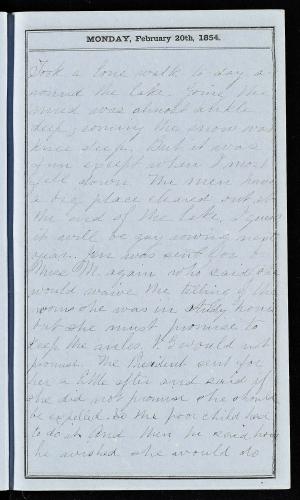 MONDAY, February 20th, 1854.
Took a long walk to day, a-
round the lake. Going the
mud was almost ankle
deep, coming the snow was
knee deep. But it was
fun except when I most
fell down. The men have
a big place cleared out at
the end of the lake, I guess
it will be gay rowing next
year. Jen was sent for to
Miss M. again who said she
would waive the telling of the
rooms she was in study hours
but she must promise to
keep the rules. & J would not
promise. The President sent for
her a little after and said if
she did not promise she should
be expelled. So the poor child had
to do it. And then he said how
he wished she would do